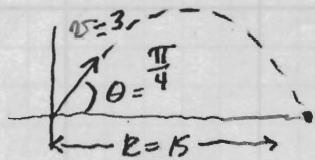 v = 3
θ = π/4
R = 15